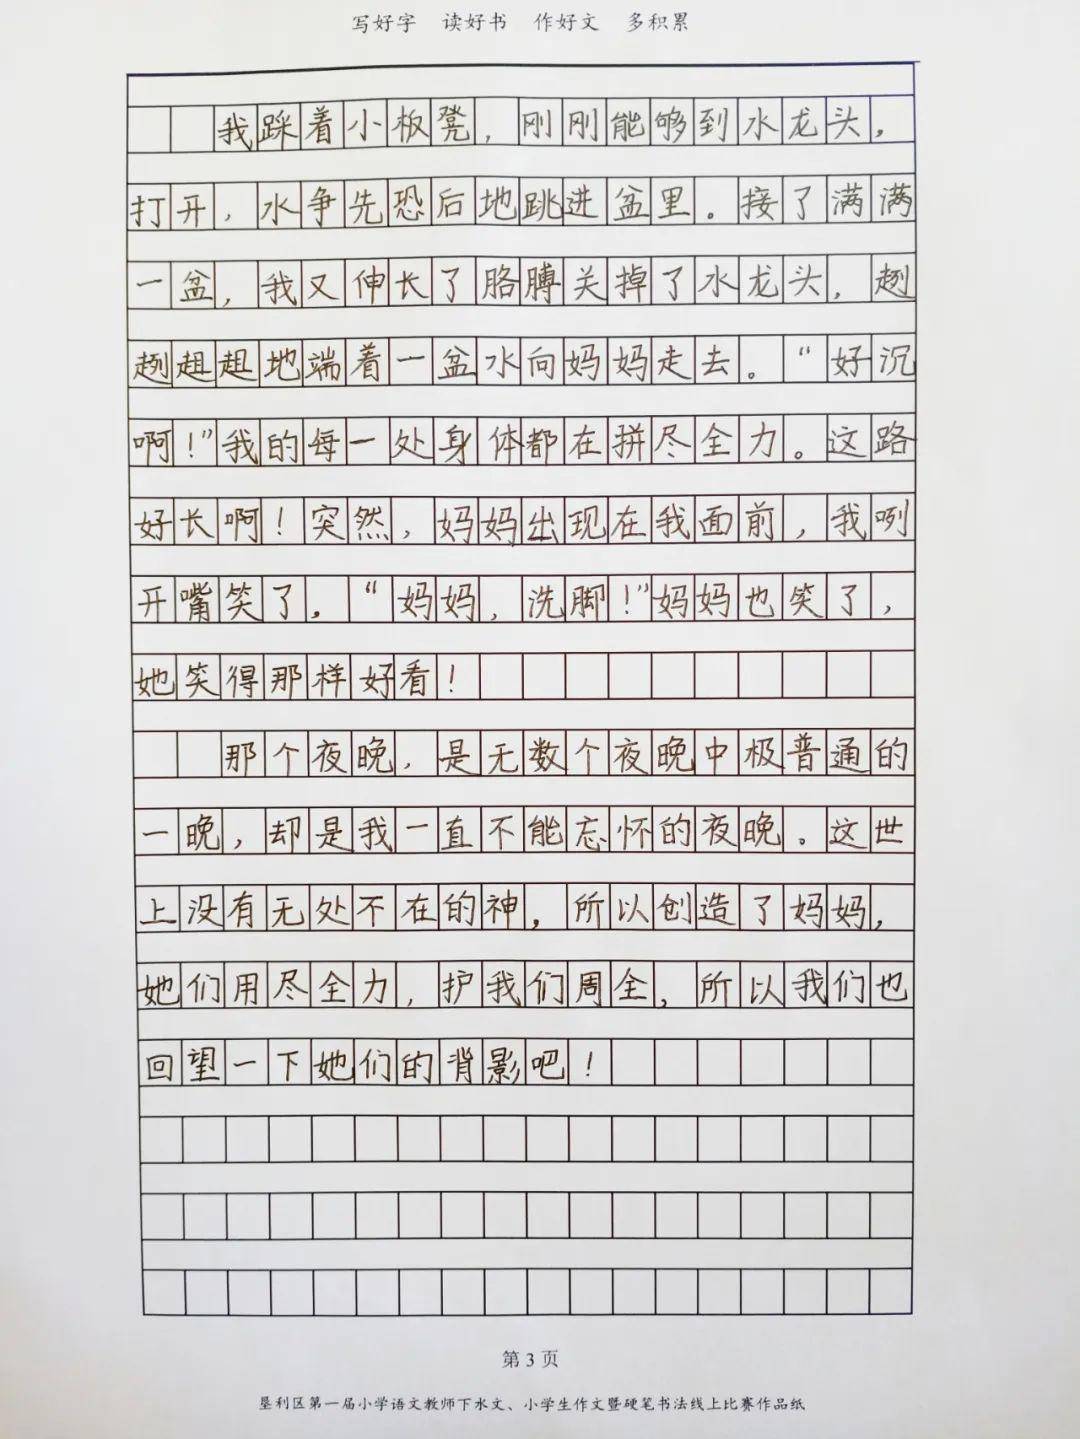 写好字 读好书 作好文 多积累
我踩着小板凳，刚刚能够到水龙头，
打开，水争先恐后地跳进盆里。接了满满
一盆，我又伸长了胳膊关掉了水龙头，趔
趔趄趄地端着一盆水向妈妈走去。“好沉
啊！”我的每一处身体都在拼尽全力。这路
好长啊！突然，妈妈出现在我面前，我咧
开嘴笑了。“妈妈，洗脚！”妈妈也笑了，
她笑得那样好看！
那个夜晚，是无数个夜晚中极普通的
一晚，却是我一直不能忘怀的夜晚。这世
上没有无处不在的神，所以创造了妈妈，
她们用尽全力，护我们周全，所以我们也
回望一下她们的背影吧！
第3页
垦利区第一届小学语文教师下水文、小学生作文暨硬笔书法线上比赛作品纸